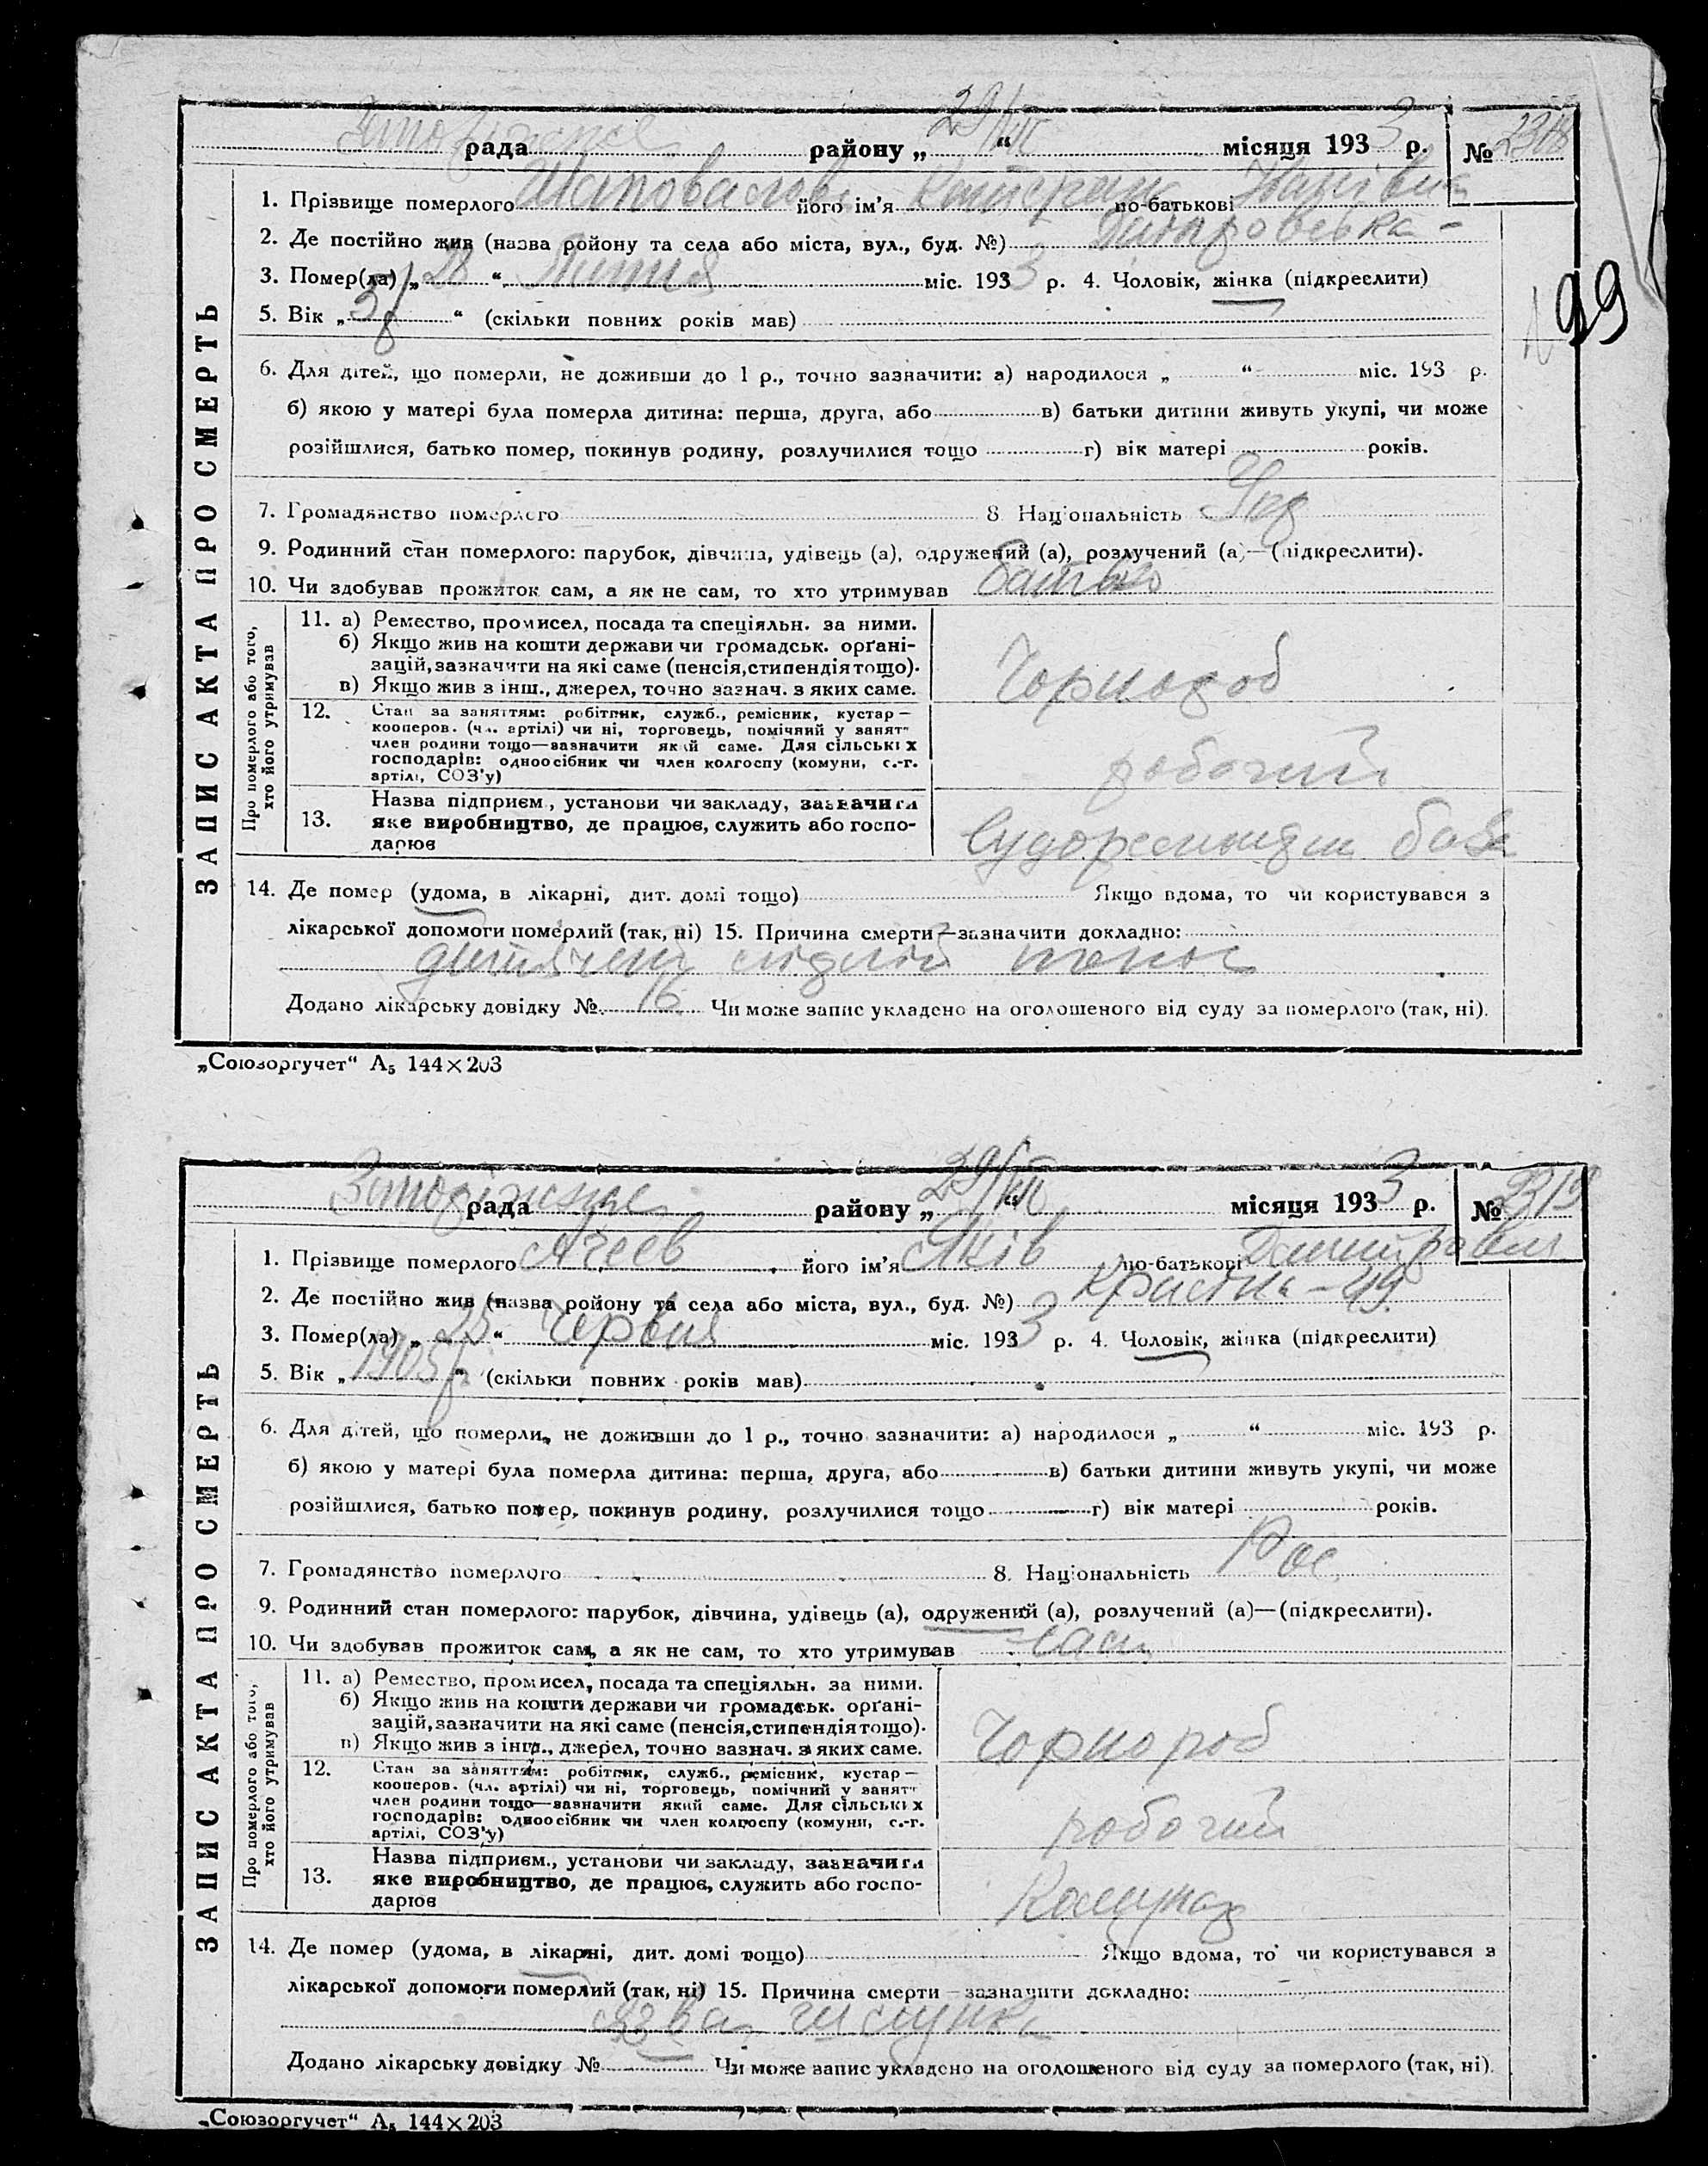 рада району „ 29/VII “ місяця 1933 р. № 2318
1. Прізвище померлого Шаповалова його ім'я Катерина по-батькові Іванівна
2. Де постійно жив (назва ройону та села або міста, вул., буд. №)
3. Помер(ла) „ 28 “ Липня міс. 1933 р. 4. Чоловік, жінка (підкреслити)
5. Вік „ “ (скільки повних років мав)
99
6. Для дітей, що померли, не доживши до 1 р., точно зазначити: а) народилося „ “ міс. 193 р.
б) якою у матері була померла дитина: перша, друга, або в) батьки дитини живуть укупі, чи може
розійшлися, батько помер, покинув родину, розлучилися тощо г) вік матері років.
7. Громадянство померлого 8. Національність
9. Родинний стан померлого: парубок, дівчина, удівець (а), одружений (а), розлучений (а)—(підкреслити).
10. Чи здобував прожиток сам, а як не сам, то хто утримував батько
ЗАПИС АКТА ПРО СМЕРТЬ
Про померлого або того, хто його утримував
11. а) Ремество, промисел, посада та спеціяльн. за ними.
б) Якщо жив на кошти держави чи громадськ. орґані-
зацій, зазначити на які саме (пенсія, стипендія тощо).
в) Якщо жив з інш., джерел, точно зазнач. з яких саме.
Чорнороб
12. Стан за заняттям: робітник, служб., ремісник, кустар—
кооперов. (чл. артілі) чи ні, торговець, помічний у занят"
член родини тощо—зазначити який саме. Для сільських
господарів: одноосібник чи член колгоспу (комуни, с.-г.
артілі, СОЗ'у)
робочий
13. Назва підприєм., установи чи закладу, зазначити
яке виробництво, де працює, служить або госпо-
дарює
14. Де помер (удома, в лікарні, дит. домі тощо) Якщо вдома, то чи користувався з
лікарської допомоги померлий (так, ні) 15. Причина смерти—зазначити докладно:
понос
Додано лікарську довідку № 16 Чи може запис укладено на оголошеного від суду за померлого (так, ні).
„Союзоргучет“ А₅ 144×203
рада району „ 29/VII “ місяця 1933 р. № 2319
1. Прізвище померлого Агеев його ім'я Яків по-батькові
2. Де постійно жив (назва ройону та села або міста, вул., буд. №) - 49
3. Помер(ла) „ 25 “ Червня міс. 1933 р. 4. Чоловік, жінка (підкреслити)
5. Вік „ 1905р. “ (скільки повних років мав)
6. Для дітей, що померли, не доживши до 1 р., точно зазначити: а) народилося „ “ міс. 193 р.
б) якою у матері була померла дитина: перша, друга, або в) батьки дитини живуть укупі, чи може
розійшлися, батько помер, покинув родину, розлучилися тощо г) вік матері років.
7. Громадянство померлого 8. Національність Рос
9. Родинний стан померлого: парубок, дівчина, удівець (а), одружений (а), розлучений (а)—(підкреслити).
10. Чи здобував прожиток сам, а як не сам, то хто утримував сам
ЗАПИС АКТА ПРО СМЕРТЬ
Про померлого або того, хто його утримував
11. а) Ремество, промисел, посада та спеціяльн. за ними.
б) Якщо жив на кошти держави чи громадськ. орґані-
зацій, зазначити на які саме (пенсія, стипендія тощо).
в) Якщо жив з інш., джерел, точно зазнач. з яких саме.
Чорнороб
12. Стан за заняттям: робітник, служб., ремісник, кустар—
кооперов. (чл. артілі) чи ні, торговець, помічний у занят"
член родини тощо—зазначити який саме. Для сільських
господарів: одноосібник чи член колгоспу (комуни, с.-г.
артілі, СОЗ'у)
робочий
13. Назва підприєм., установи чи закладу, зазначити
яке виробництво, де працює, служить або госпо-
дарює
14. Де помер (удома, в лікарні, дит. домі тощо) Якщо вдома, то чи користувався з
лікарської допомоги померлий (так, ні) 15. Причина смерти—зазначити докладно:
Язва шлунка
Додано лікарську довідку № Чи може запис укладено на оголошеного від суду за померлого (так, ні).
„Союзоргучет“ А₅ 144×203